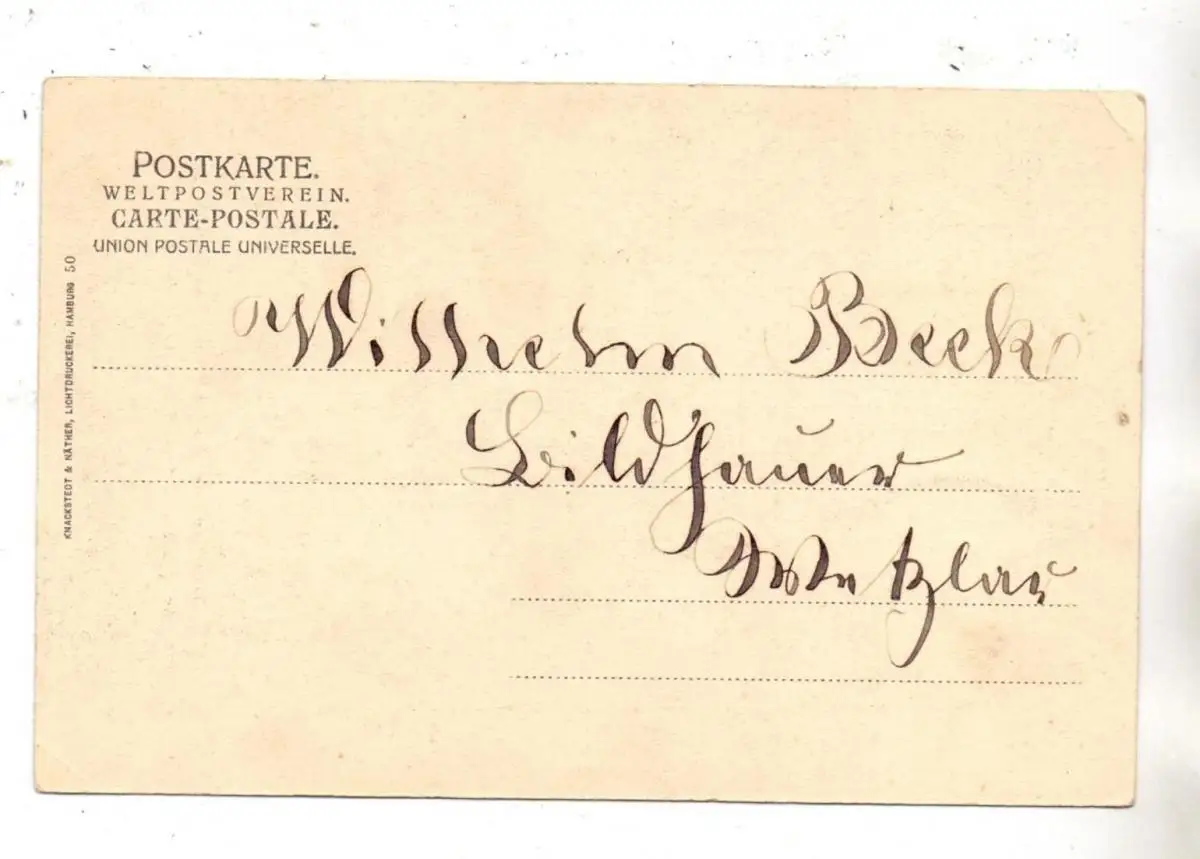 POSTKARTE.
WELTPOSTVEREIN.
CARTE-POSTALE.
UNION POSTALE UNIVERSELLE.
KNACKSTEDT & NÄTHER, LICHTDRUCKEREI, HAMBURG 50
Wilhelm Beck
Bildhauer
Wetzlar